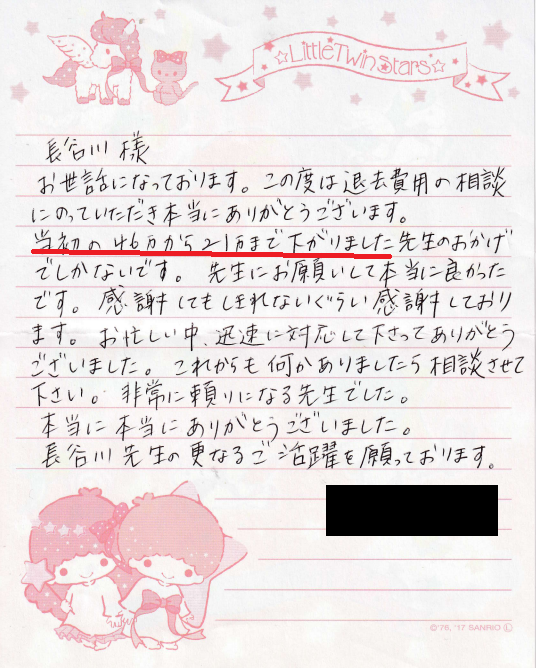 ☆LittleTwinStars☆
長谷川 様
お世話になっております。この度は退去費用の相談
にのっていただき本当にありがとうございます。
当初の46万から21万まで下がりました先生のおかげ
でしかないです。 先生にお願いして本当に良かった
です。 感謝してもしきれないぐらい感謝しており
ます。 お忙しい中、迅速に対応して下さってありがとう
ございました。 これからも何かありましたら相談させて
下さい。 非常に頼りになる先生でした。
本当に本当にありがとうございました。
長谷川先生の更なるご活躍を願っております。
©'76, '17 SANRIO Ⓛ